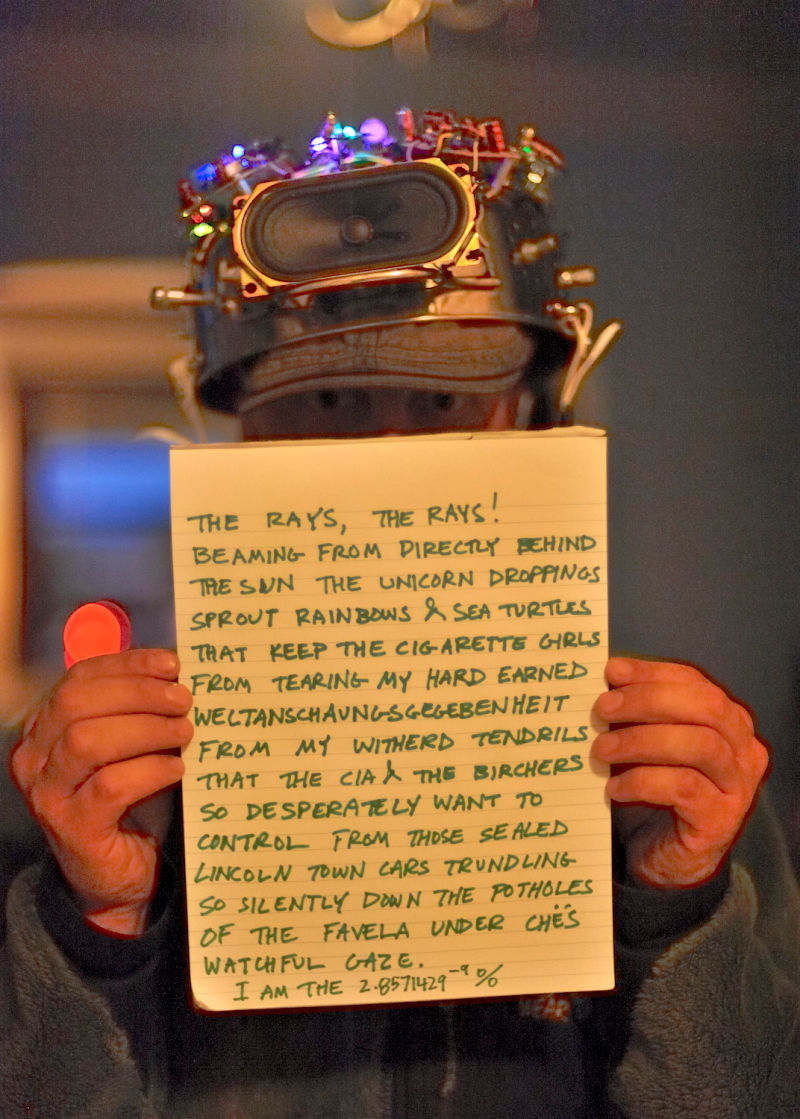 THE RAYS, THE RAYS!
BEAMING FROM DIRECTLY BEHIND
THE SUN THE UNICORN DROPPINGS
SPROUT RAINBOWS & SEA TURTLES
THAT KEEP THE CIGARETTE GIRLS
FROM TEARING MY HARD EARNED
WELTANSCHAUNGSGEGEBENHEIT
FROM MY WITHERD TENDRILS
THAT THE CIA & THE BIRCHERS
SO DESPERATELY WANT TO
CONTROL FROM THOSE SEALED
LINCOLN TOWN CARS TRUNDLING
SO SILENTLY DOWN THE POTHOLES
OF THE FAVELA UNDER CHË'S
WATCHFUL GAZE.
I AM THE 2.8571429⁻⁹ %